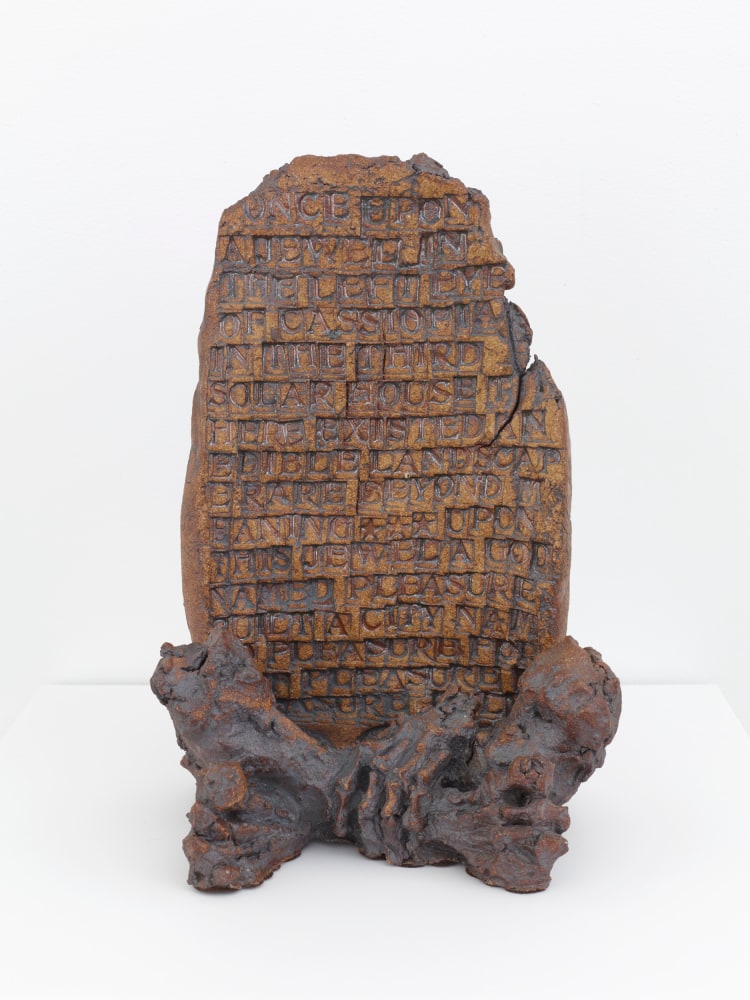 ONCE UPON
A JEWELL IN
THE LEFT EYE
OF CASSIOPIA
IN THE THIRD
SOLAR HOUSE T
HERE EXISTED AN
EDIBLE LANDSCAP
E RARE BEYOND M
EANING ★★★ UPON
THIS JEWEL A GOD
NAMED PLEASURE
BUILDT A CITY NAM
PLEASURE FO
PLEASURE
ASURE